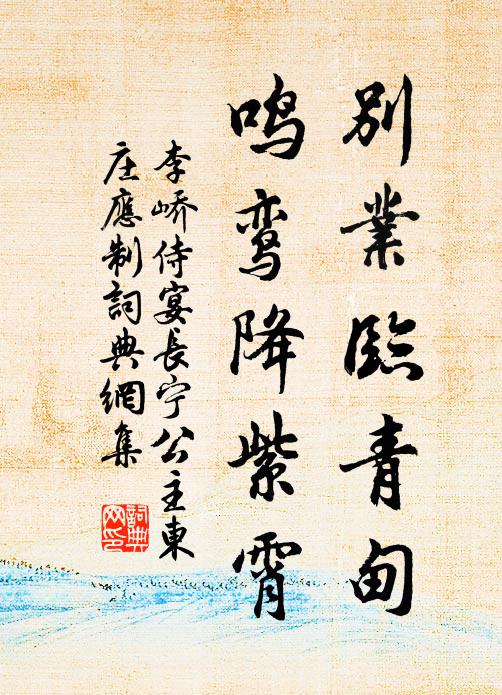 別業臨青甸
鸣鸾降紫霄
李嶠侍宴長宁公主東
庄應制詞典網集
詞典
网印